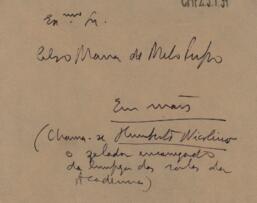 Exmo Sr.
Celso Maria de Mello Pupo
Em mãos
(Chama-se Humberto Nicolino
o zelador encarregado
da limpeza das salas da
Academia)